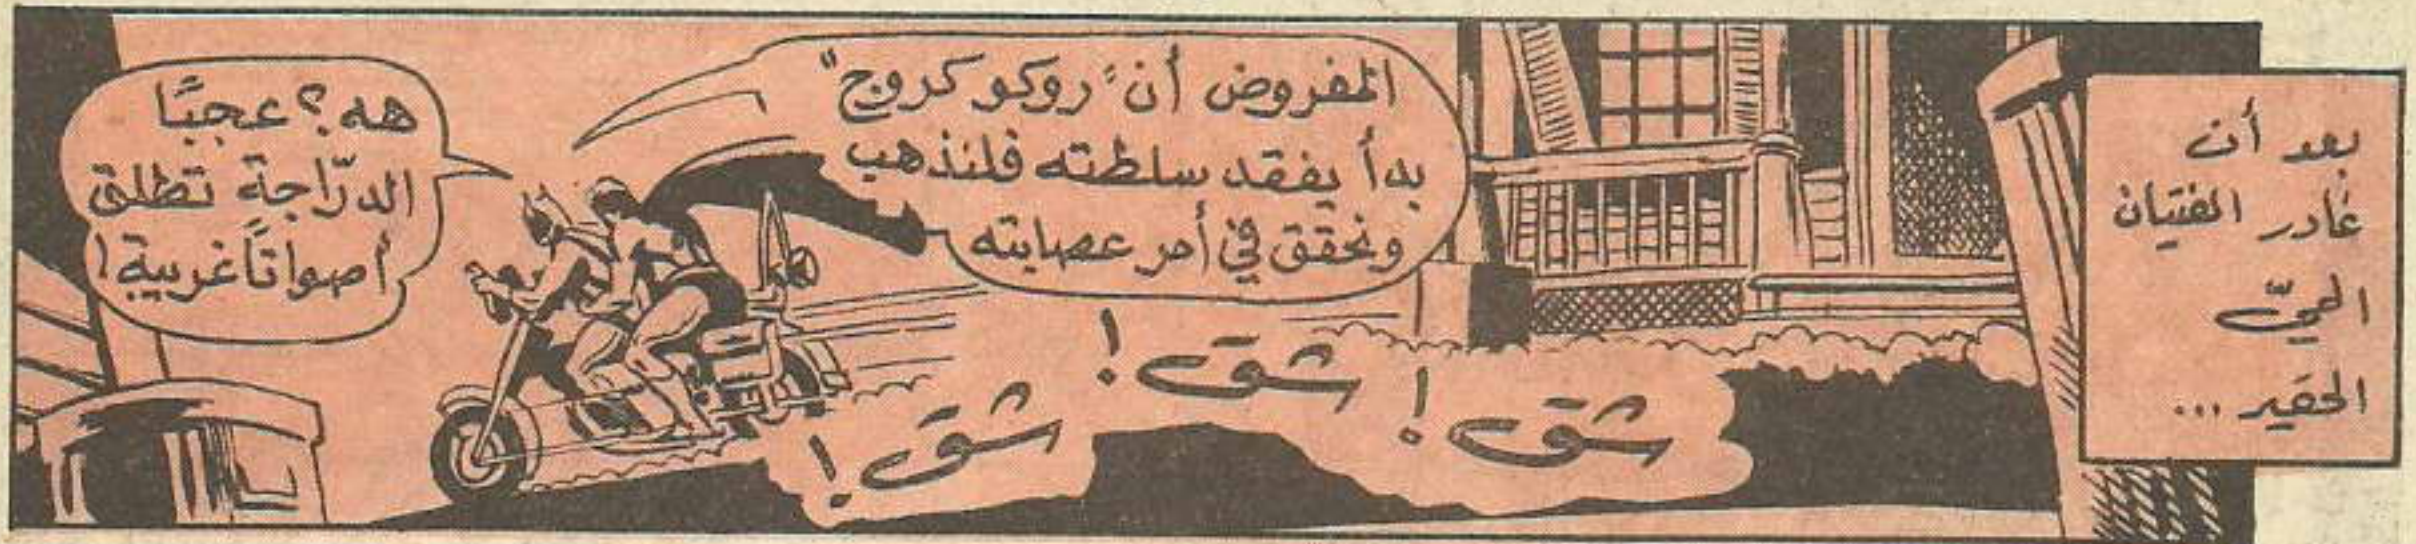 بعد أن
غادر الفتيان
الحيّ
الحقير ...
المفروض أن "روكو كروج"
بدأ يفقد سلطته فلنذهب
ونحقق في أمر عصابته
هه؟ عجبًا
الدرّاجة تطلق
أصواتًا غريبة!
شق!
شق!
شق!